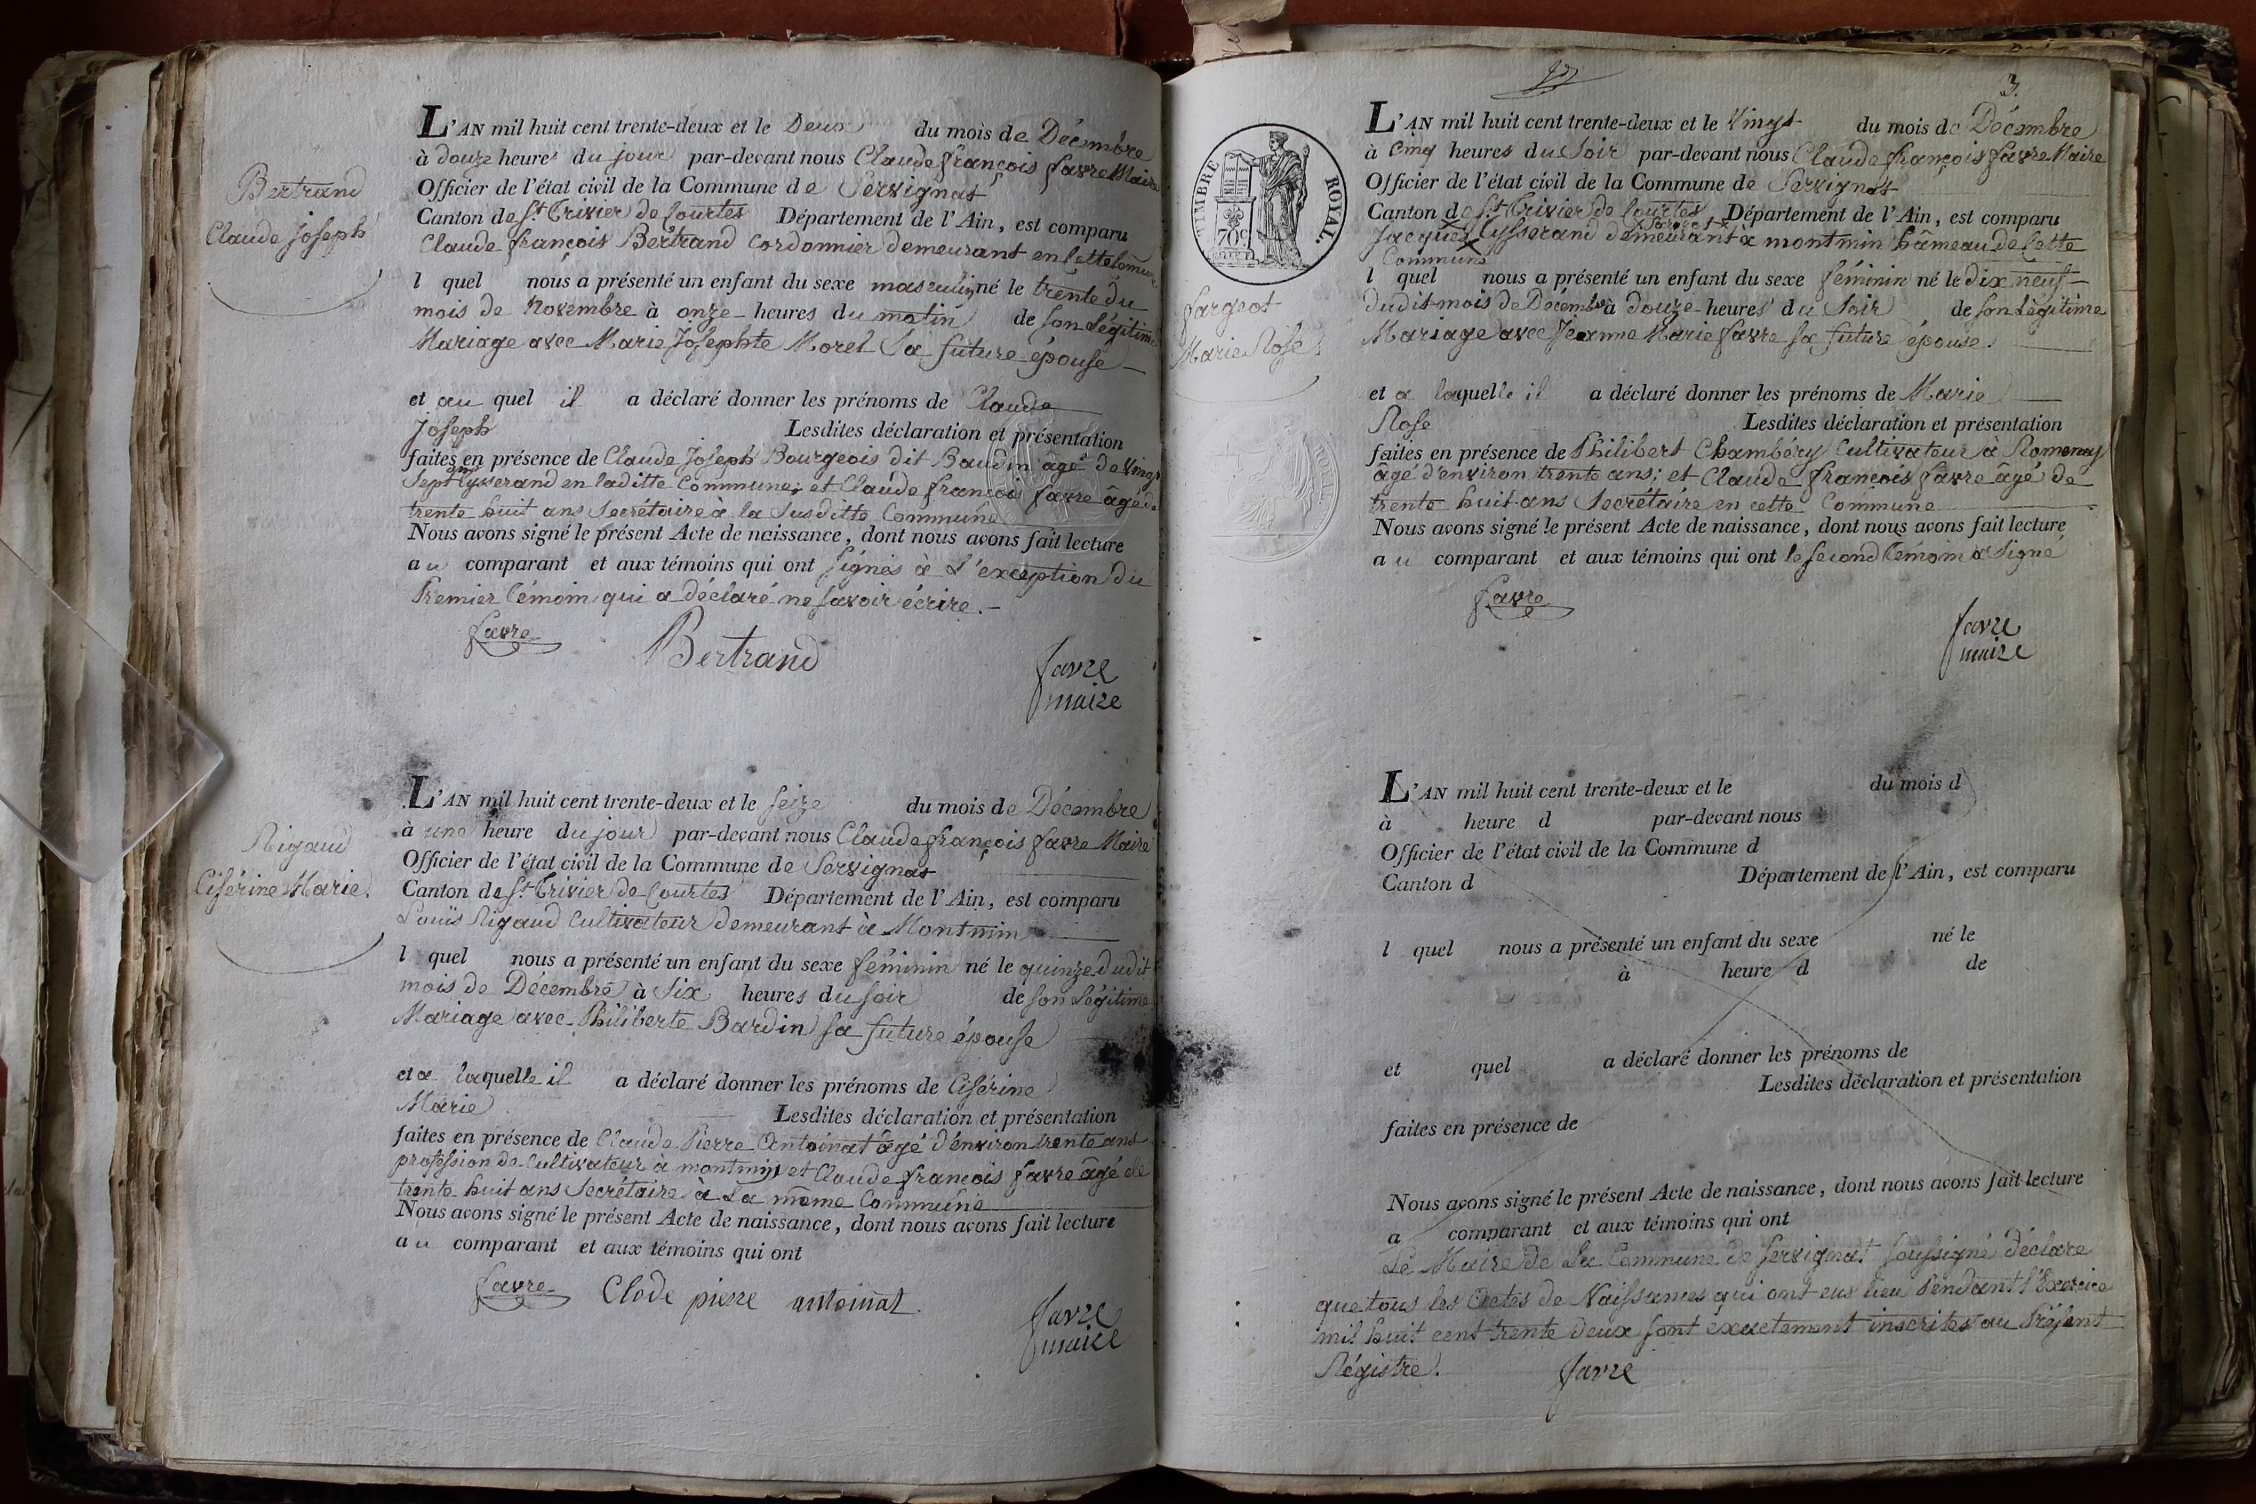 Bertrand
Claude Joseph
L'AN mil huit cent trente-deux et le Deux du mois de Décembre
à douze heures du jour par-devant nous Claude françois favre Maire
Officier de l'état civil de la Commune de Servignat
Canton de St. Trivier de Courtes Département de l'Ain, est comparu
Claude françois Bertrand Cordonnier demeurant en cette Commune
l quel nous a présenté un enfant du sexe masculin né le trente du
mois de Novembre à onze heures du matin de son Légitime
Mariage avec Marie Josephte Morel Sa future épouse
et au quel il a déclaré donner les prénoms de Claude
Joseph Lesdites déclaration et présentation
faites en présence de Claude Joseph Bourgeois dit Baudin âgé de vingt
Sept ans Tysserand en laditte Commune; et Claude françois favre âgé de
trente huit ans Secrétaire à la Susditte Commune
Nous avons signé le présent Acte de naissance, dont nous avons fait lecture
au comparant et aux témoins qui ont Signés à L'exception du
Premier témoin qui a déclaré ne savoir écrire.
favre Bertrand favre
maire
Rigaud
Cisérine Marie.
L'AN mil huit cent trente-deux et le seize du mois de Décembre
à une heure du jour par-devant nous Claude françois favre Maire
Officier de l'état civil de la Commune de Servignat
Canton de St. Trivier de Courtes Département de l'Ain, est comparu
Louis Rigaud Cultivateur demeurant à Montmin
l quel nous a présenté un enfant du sexe féminin né le quinze dudit
mois de Décembre à Six heures du soir de son Légitime
Mariage avec Philiberte Bardin sa future épouse
et a laquelle il a déclaré donner les prénoms de Cisérine
Marie Lesdites déclaration et présentation
faites en présence de Claude Pierre Antoinat âgé d'environ trente ans
profession de Cultivateur à montmin et Claude françois favre âgé de
trente huit ans Secrétaire à La même Commune
Nous avons signé le présent Acte de naissance, dont nous avons fait lecture
au comparant et aux témoins qui ont
favre Clode pierre antoinat favre
maire
3.
TIMBRE ROYAL.
70c
fargeot
Marie Rose
L'AN mil huit cent trente-deux et le Vingt du mois de Décembre
à Cinq heures du Soir par-devant nous Claude françois favre Maire
Officier de l'état civil de la Commune de Servignat
Canton de St. Trivier de Courtes Département de l'Ain, est comparu
Jacques Tysserand demeurant à montmin hâmeau de Cette
Commune
l quel nous a présenté un enfant du sexe féminin né le dix neuf
dudit mois de Décembre à douze heures du Soir de son Légitime
Mariage avec Jeanne Marie favre sa future épouse.
et a laquelle il a déclaré donner les prénoms de Marie
Rose Lesdites déclaration et présentation
faites en présence de Philibert Chambéry Cultivateur à Romenay
âgé d'environ trente ans; et Claude françois favre âgé de
trente huit ans Secrétaire en cette Commune
Nous avons signé le présent Acte de naissance, dont nous avons fait lecture
au comparant et aux témoins qui ont le second témoin a Signé
favre
favre
maire
L'AN mil huit cent trente-deux et le du mois d
à heure d par-devant nous
Officier de l'état civil de la Commune d
Canton d Département de l'Ain, est comparu
l quel nous a présenté un enfant du sexe né le
à heure d de
et quel a déclaré donner les prénoms de
Lesdites déclaration et présentation
faites en présence de
Nous avons signé le présent Acte de naissance, dont nous avons fait lecture
a comparant et aux témoins qui ont
Le Maire de La Commune de Servignat soussigné déclare
que tous les Actes de Naissances qui ont eus lieu Pendant l'Exercice
mil huit cent trente deux sont exactement inscrites au Présent
Régistre.
favre